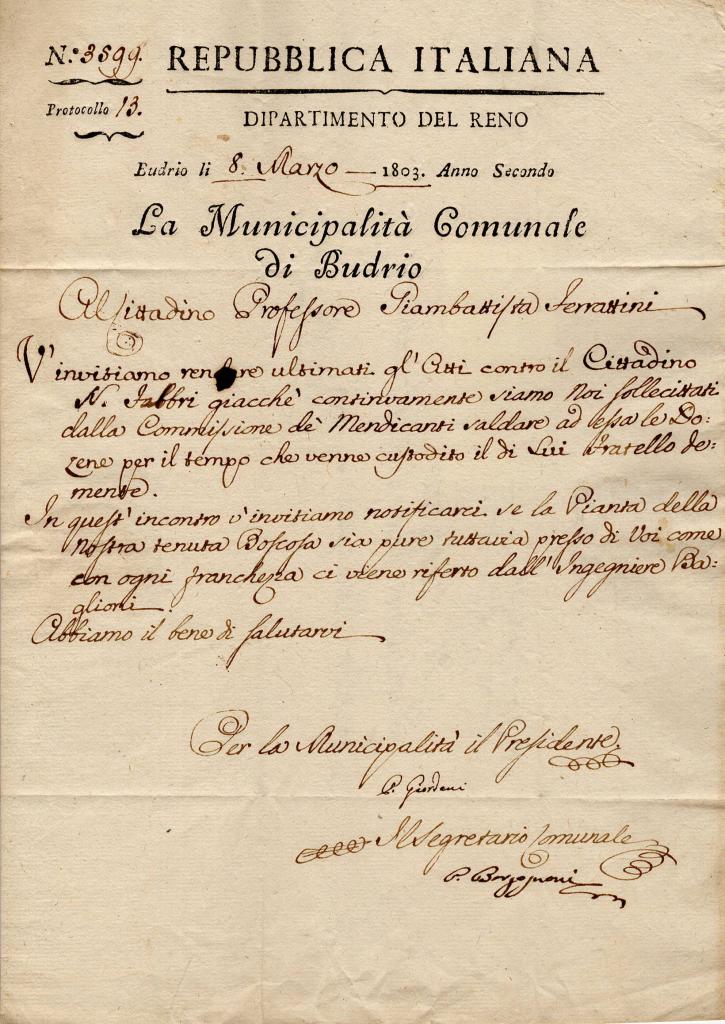 N.º 3599. REPUBBLICA ITALIANA
Protocollo 13.
DIPARTIMENTO DEL RENO
Budrio li 8. Marzo — 1803. Anno Secondo
La Municipalità Comunale
di Budrio
Al Cittadino Professore Giambattista Ferrattini
V'invitiamo rendere ultimati gl'Atti contro il Cittadino
N. Fabbri giacchè continuamente siamo Noi sollecittati
dalla Commissione de Mendicanti saldare ad essa le Do:
zene per il tempo che venne custodito il di Lui Fratello de:
mente.
In quest'incontro v'invitiamo notificarci se la Pianta della
Nostra tenuta Boscosa sia pure tuttavia presso di Voi come
con ogni franchezza ci viene riferto dall'Ingegniere Ba:
glioni.
Abbiamo il bene di salutarvi
Per la Municipalità il Presidente
P. Giordani
Il Segretario Comunale
P. Borgognoni